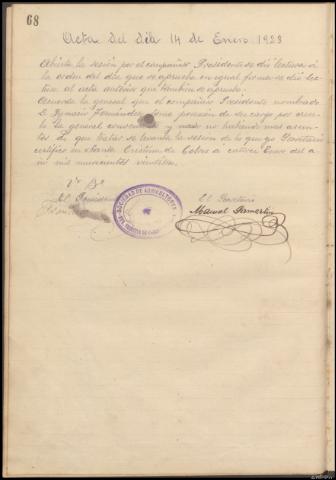 68
Acta del día 14 de Enero 1923
Abierta la sesión por el compañero Presidente se dió lectura a
la orden del dia que se aprueba en igual forma se dió lec
tura al acta anterior que tambien se aprueba.
Acuerda la general que el compañero Presidente nombrado
D. Ignacio Fernández toma posesión de su cargo por acuer
la general y no habiendo mas asun
tos que tratar se levanta la sesión de lo que yo Secretario
certifico en Cristina de Cobres a catorce Enero del a
ño mil novecientos
Vº Bº
El Presidente
El Secretario
SOCIEDAD DE AGRICULTORES
Manuel